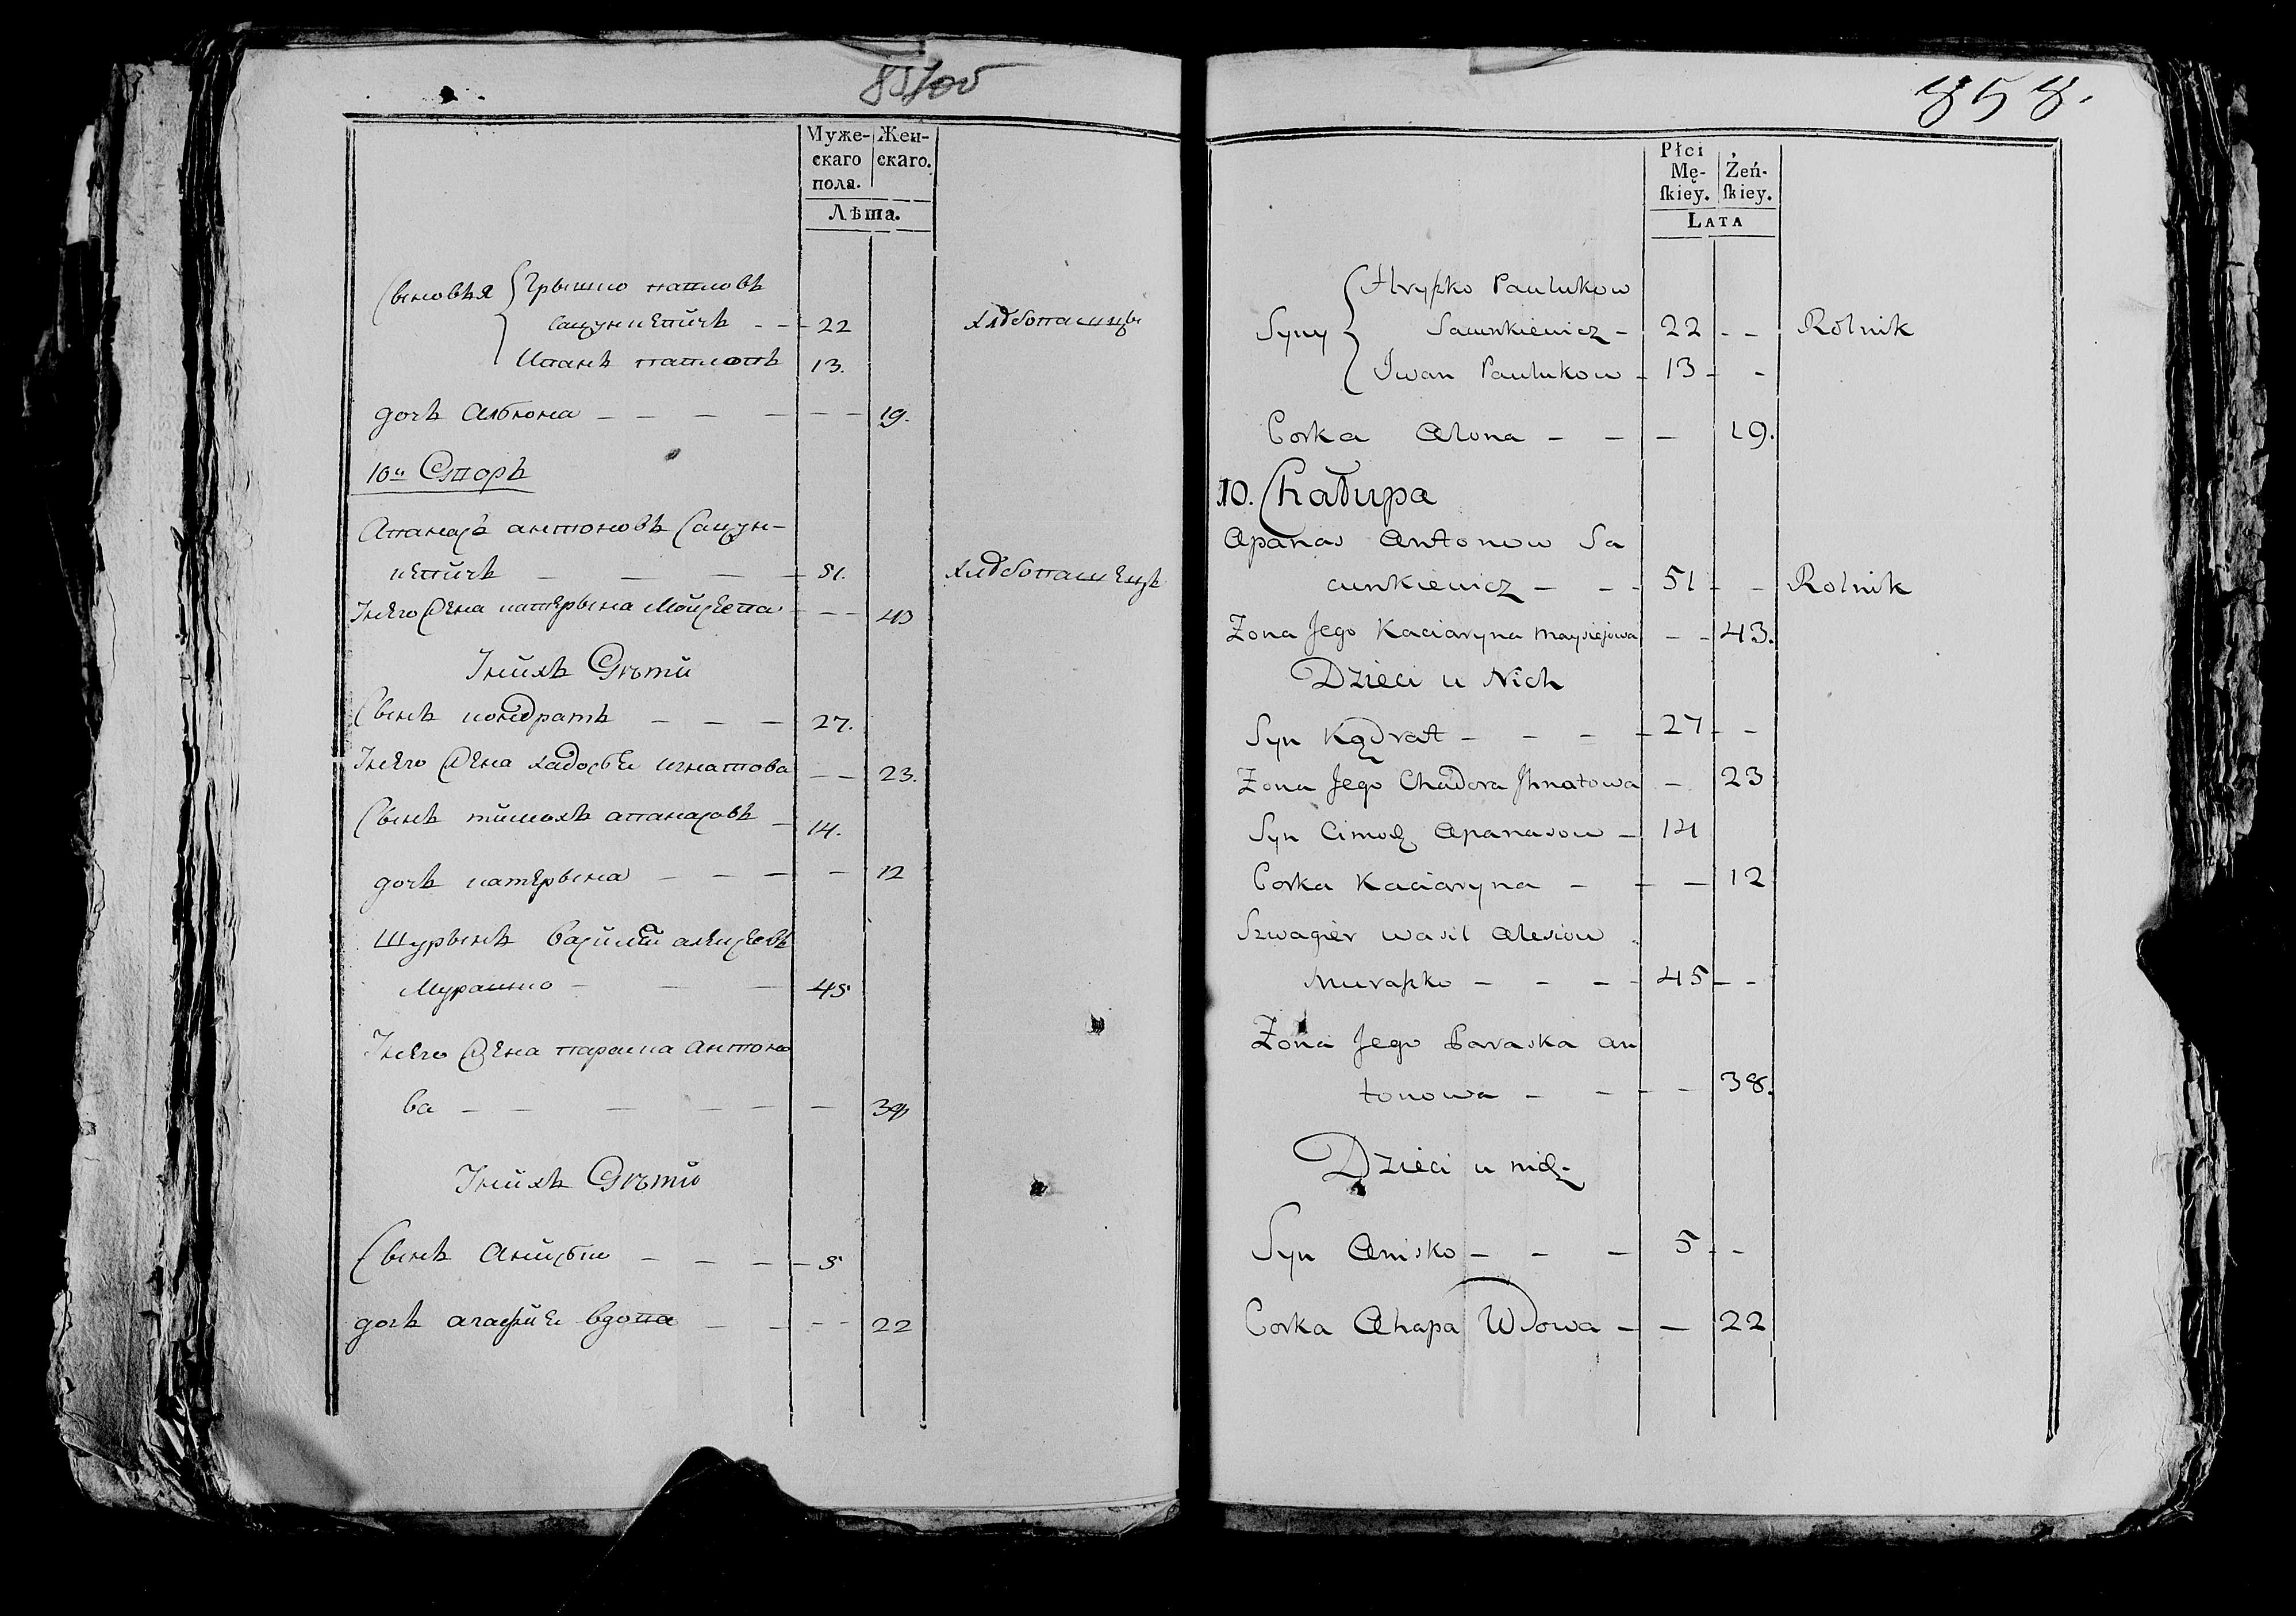 Муже-
скаго
пола.
Жен-
скаго.
Лѣта.
Сыновья Грышко павловъ
сацункевичъ - - 22 хлѣбопашцы
Иванъ павловъ 13.
дочь Алѣона - - - - - - 19.
10й Дворъ
Апанасъ антоновъ Сацун-
кевичъ - - - - 51. хлѣбопашецъ
Унего Жена катерына Мойсеева - - 43
Унихъ Дѣти
Сынъ кондратъ - - - 27.
Унего Жена хадосья игнатова - - 23.
Сынъ тимохъ апанасовъ - 14.
дочь катерына - - - - 12
Шурынъ василій алексеевъ
Мурашко - - - 45
Унего Жена параска Антоно
ва - - - - - - 38
Унихъ Дѣти
Сынъ Анисько - - - - 5
дочь агафия вдова - - - - 22
858.
Płci
Mę-
ſkiey.
Żeń-
ſkiey.
LATA
Syny Hryszko Paulukow
Sacunkiewicz - 22 - - Rolnik
Jwan Paulukow - 13 - -
Corka Alona - - - 19.
10. Chałupa
Apanas Antonow Sa
cunkiewicz - - - 51 - - Rolnik
Zona Jego Kaciaryna Maysiejowa - - 43.
Dzieci u Nich
Syn Kądrat - - - - 27 - -
Zona Jego Chadora Jhnatowa - 23
Syn Cimoch Apanasow - 14
Corka Kaciaryna - - - 12
Szwagier Wasil Alesiow
Muraszko - - - - 45 - -
Zona Jego Paraska an
tonowa - - - - 38.
Dzieci u nich
Syn Anisko - - - 5 - -
Corka Ahapa Wdowa - - 22